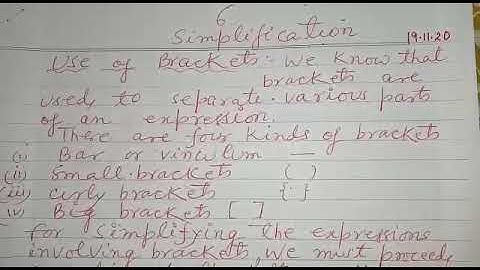 6
Simplification 19.11.20
Use of Brackets:- We know that
brackets are
used to separate various parts
of an expression.
There are four kinds of brackets
(i) Bar or vinculum —
(ii) small brackets ( )
(iii) curly brackets { }
(iv) Big brackets [ ]
for simplifying the expressions
involving brackets, we must proceed